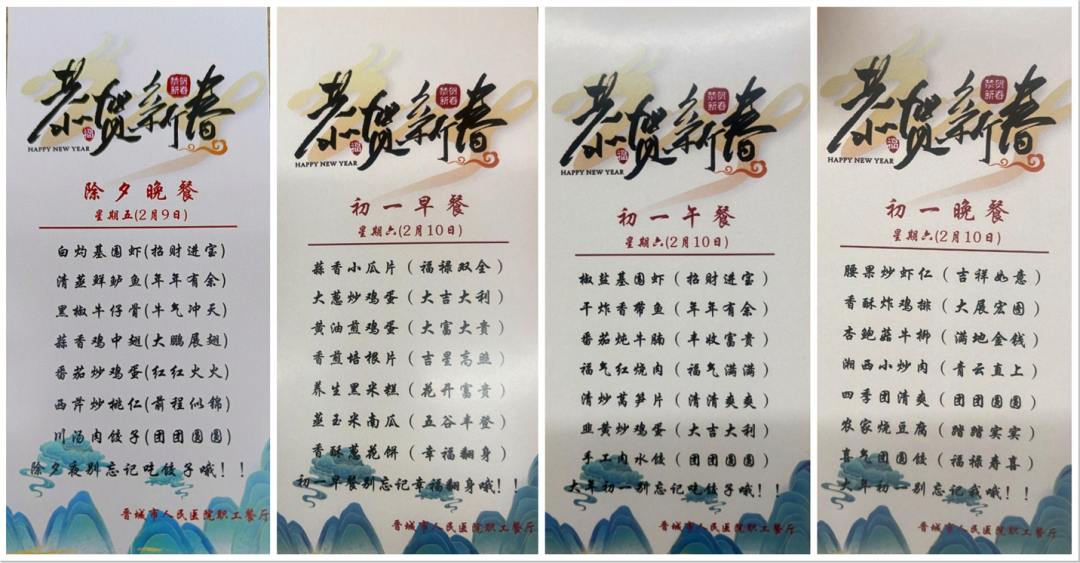 恭贺新春
恭贺
新春
福
HAPPY NEW YEAR
除夕晚餐
星期五(2月9日)
白灼基围虾(招财进宝)
清蒸鲜鲈鱼(年年有余)
黑椒牛仔骨(牛气冲天)
蒜香鸡中翅(大鹏展翅)
番茄炒鸡蛋(红红火火)
西芹炒桃仁(前程似锦)
川汤肉饺子(团团圆圆)
除夕夜别忘记吃饺子哦!!
晋城市人民医院职工餐厅
恭贺新春
恭贺
新春
福
HAPPY NEW YEAR
初一早餐
星期六(2月10日)
蒜香小瓜片(福禄双全)
大葱炒鸡蛋(大吉大利)
黄油煎鸡蛋(大富大贵)
香煎培根片(吉星高照)
养生黑米糕(花开富贵)
蒸玉米南瓜(五谷丰登)
香酥葱花饼(幸福翻身)
初一早餐别忘记幸福翻身哦!!
晋城市人民医院职工餐厅
恭贺新春
恭贺
新春
福
HAPPY NEW YEAR
初一午餐
星期六(2月10日)
椒盐基围虾(招财进宝)
干炸香带鱼(年年有余)
番茄炖牛腩(丰收富贵)
福气红烧肉(福气满满)
清炒莴笋片(清清爽爽)
韭黄炒鸡蛋(大吉大利)
手工肉水饺(团团圆圆)
大年初一别忘记吃饺子哦!!
晋城市人民医院职工餐厅
恭贺新春
恭贺
新春
福
HAPPY NEW YEAR
初一晚餐
星期六(2月10日)
腰果炒虾仁(吉祥如意)
香酥炸鸡排(大展宏图)
杏鲍菇牛柳(满地金钱)
湘西小炒肉(青云直上)
四季团清爽(团团圆圆)
农家烧豆腐(踏踏实实)
喜气团圆饺(福禄寿喜)
大年初一别忘记我哦!!
晋城市人民医院职工餐厅